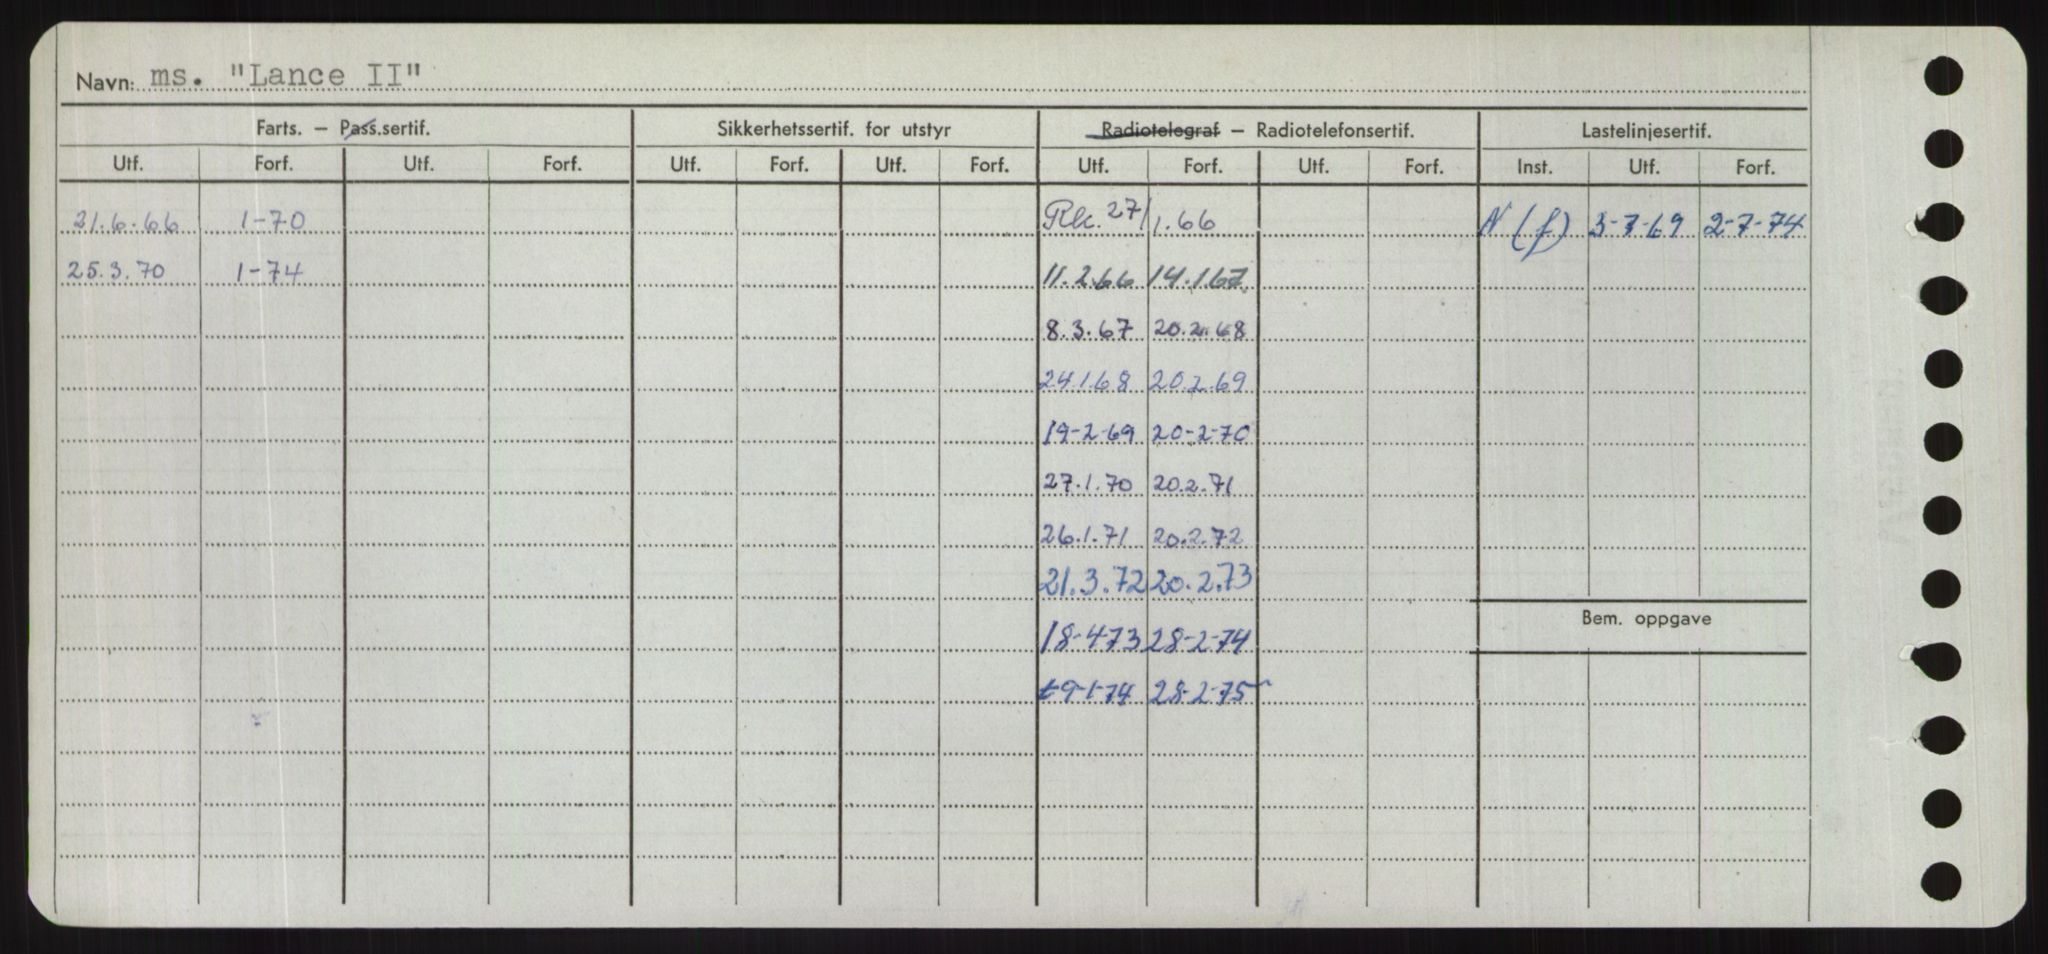 Navn: ms. "Lance II"
Farts. – Pass.sertif. Sikkerhetssertif. for utstyr Radiotelegraf – Radiotelefonsertif. Lastelinjesertif.
Utf. Forf. Utf. Forf. Utf. Forf. Utf. Forf. Utf. Forf. Utf. Forf. Inst. Utf. Forf.
21.6.66 1-70 Rk. 27/1.66 N (f) 3-7-69 2-7-74
25.3.70 1-74 11.2.66 14.1.67
8.3.67 20.2.68
24.1.68 20.2.69
19-2-69 20-2-70
27.1.70 20.2.71
26.1.71 20.2.72
21.3.72 20.2.73
Bem. oppgave
18-4-73 28-2-74
28-2-75